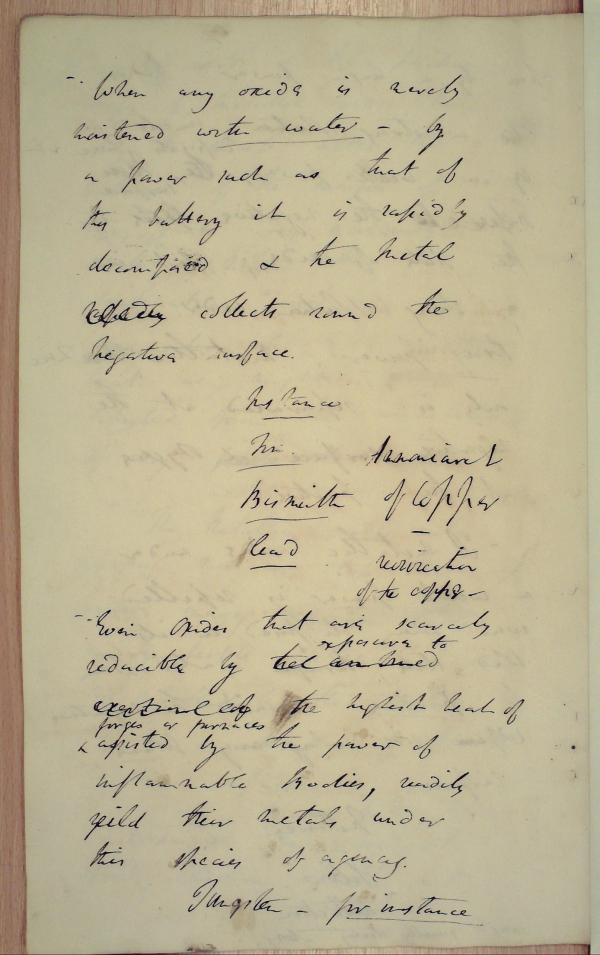 - When any oxide is merely
moistened with water - by
a power such as that of
this battery it is rapidly
decomposed & the metal
rapidly collects round the
negative surface.
Instance
Tin.
Ammoniaret
Bismuth
of Copper
-
lead
revivication
of the copper -
- Even oxides that are scarcely
exposure to
reducible by the combined
the highest heat of
forges or furnaces
& assisted by the power of
inflammable bodies, readily
yeild their metals under
this species of agency.
Tungsten - for instance